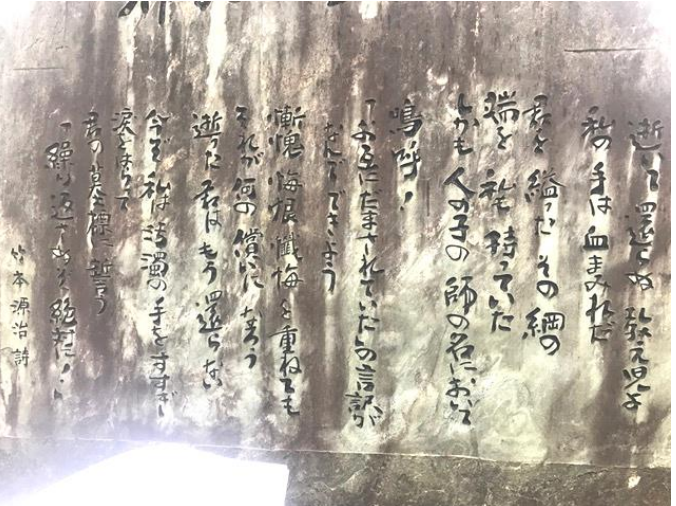 逝いて還らぬ教え児よ
私の手は血まみれだ
君を縊ったその綱の
端を私も持っていた
しかも人の子の師の名において
嗚呼！
「お互にだまされていた」の言訳が
なんでできよう
慚愧 悔恨 懺悔を重ねても
それが何の償いになろう
逝った君はもう還らない
今ぞ私は汚濁の手をすすぎ
涙をはらって
君の墓標に誓う
「繰り返さぬぞ絶対に！」
竹本源治詩